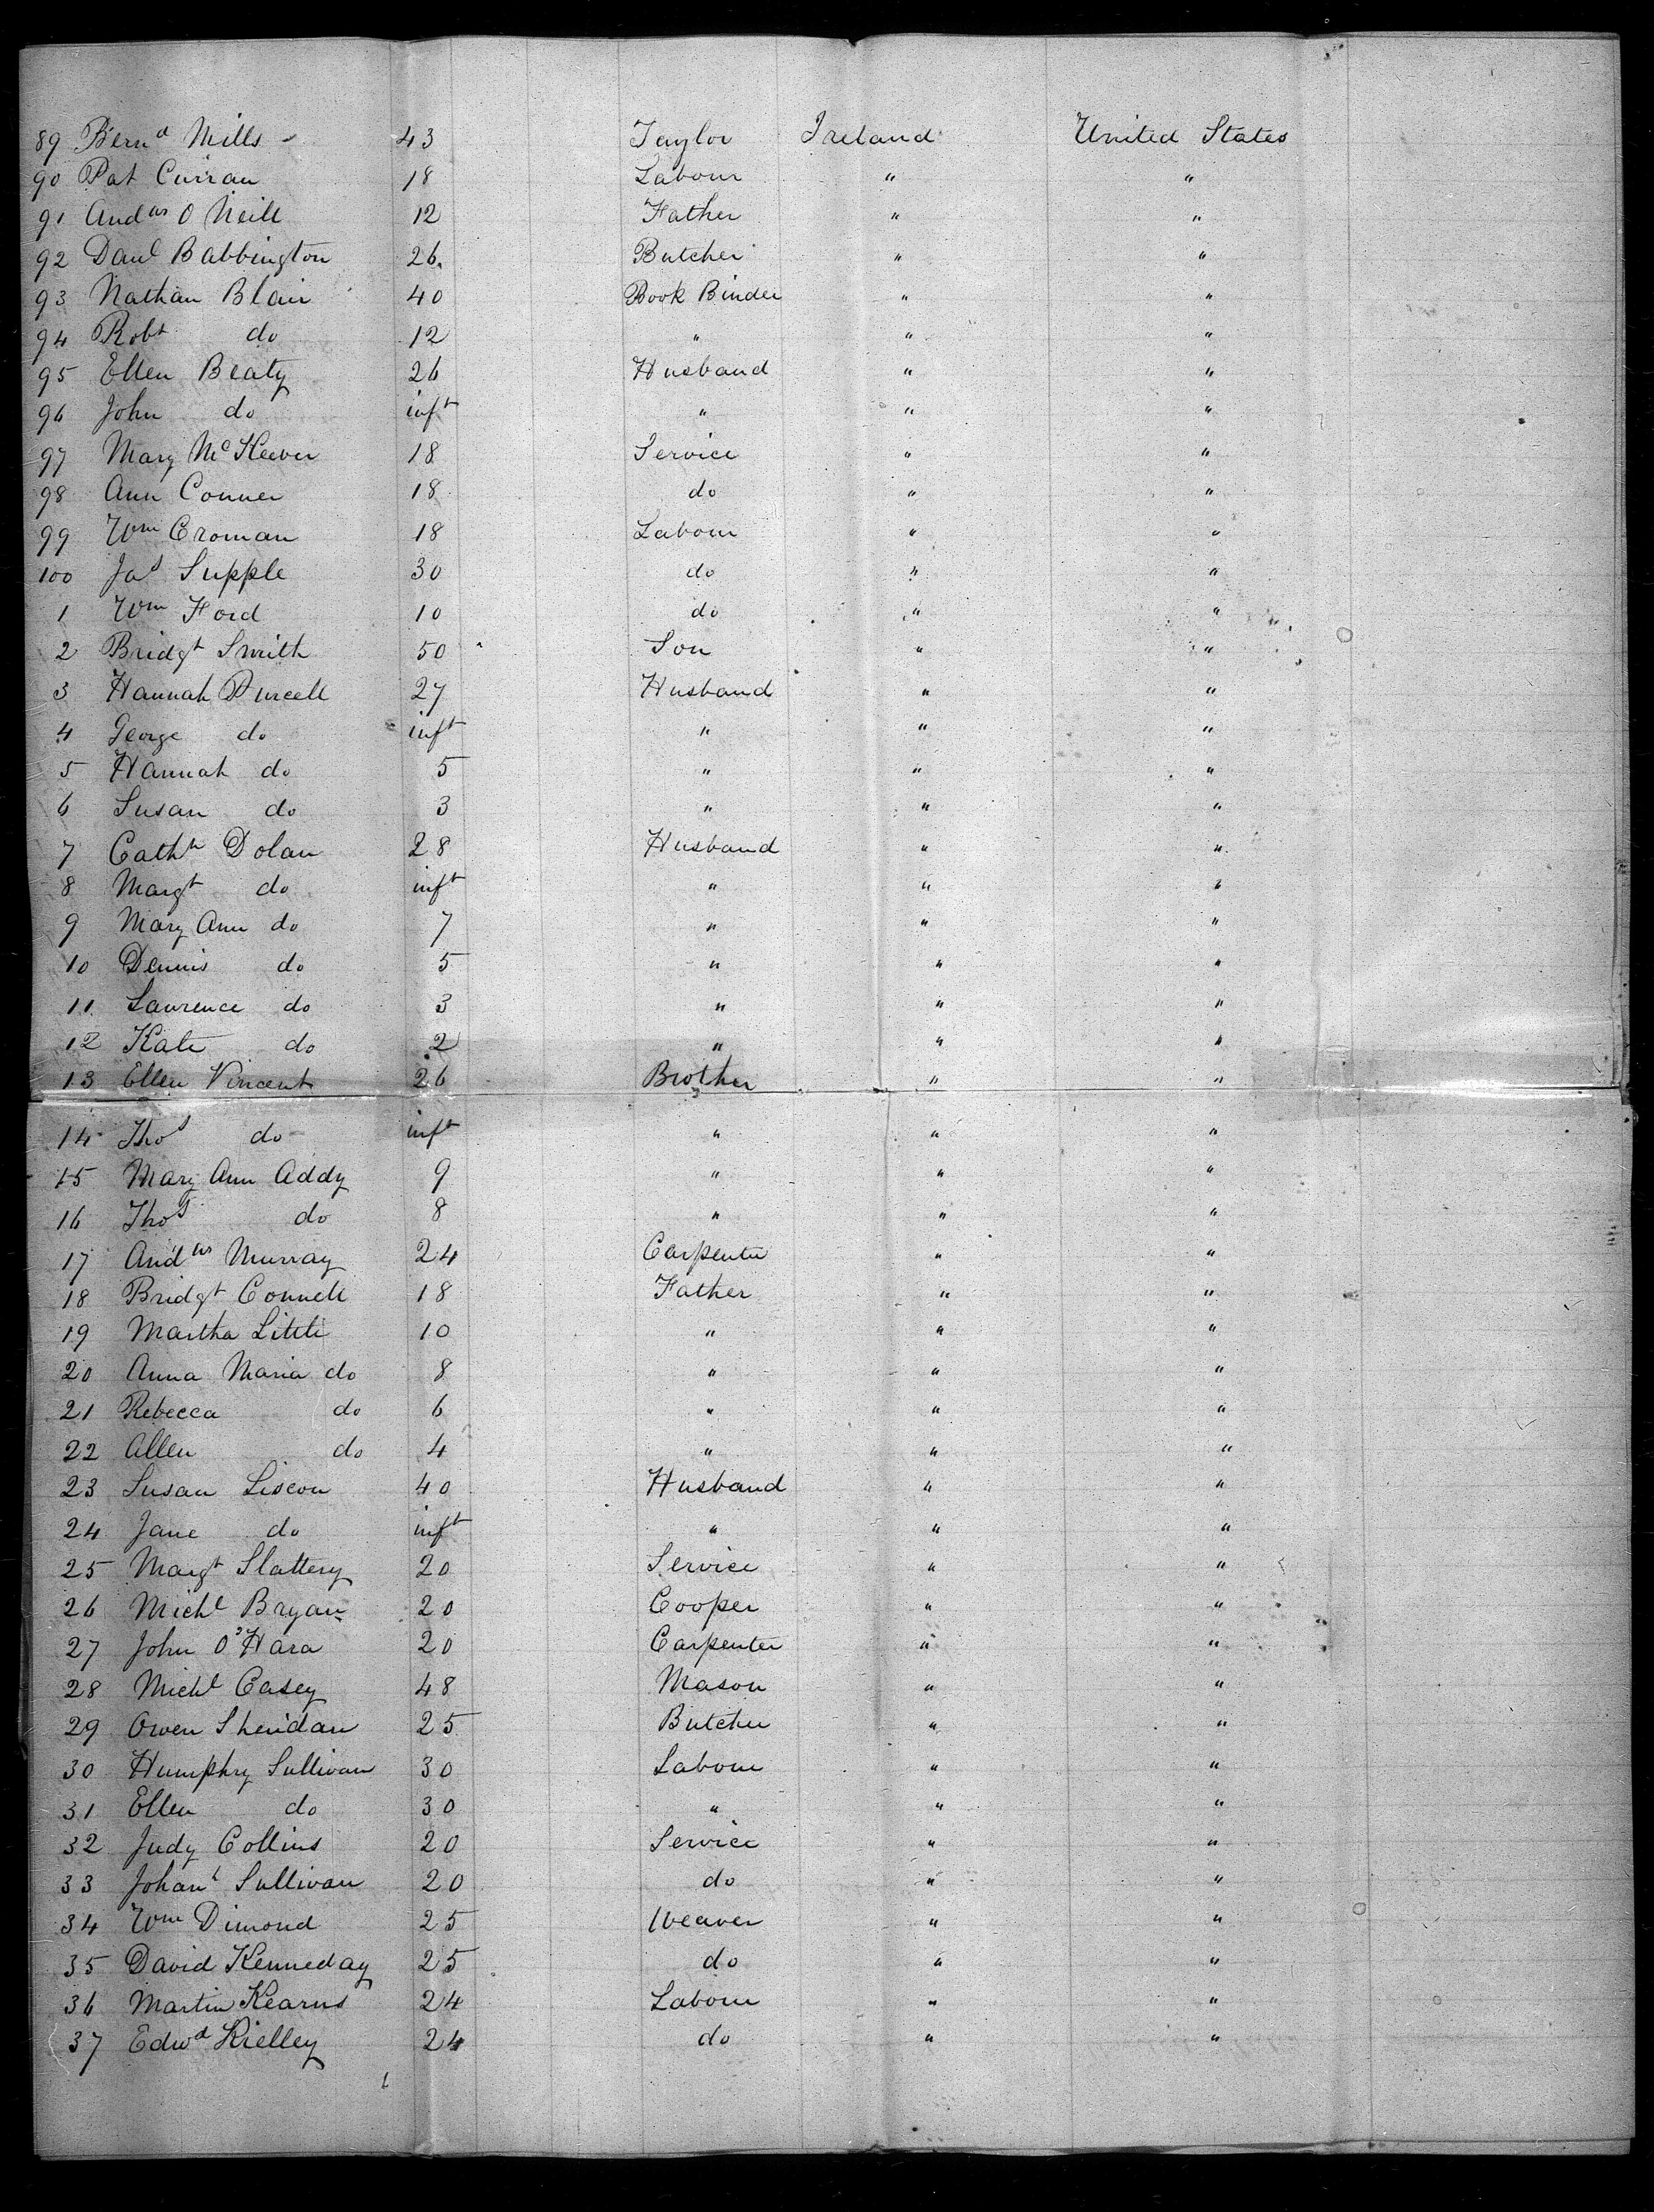 89 Bernd Mills 43 Taylor Ireland United States
90 Pat Curran 18 Labour " "
91 Andw O Neill 12 Father " "
92 Danl Babbington 26 Butcher " "
93 Nathan Blair 40 Book Binder " "
94 Robt do 12 " " "
95 Ellen Beaty 26 Husband " "
96 John do inft " " "
97 Mary McKeever 18 Service " "
98 Ann Conner 18 do " "
99 Wm Croman 18 Labour " "
100 Jas Supple 30 do " "
1 Wm Ford 10 do " "
2 Bridgt Smith 50 Son " "
3 Hannah Purcell 27 Husband " "
4 George do inft " " "
5 Hannah do 5 " " "
6 Susan do 3 " " "
7 Cathn Dolan 28 Husband " "
8 Margt do inft " " "
9 Mary Ann do 7 " " "
10 Dennis do 5 " " "
11 Lawrence do 3 " " "
12 Kate do 2 " " "
13 Ellen Vincent 26 Brother " "
14 Thos do inft " " "
15 Mary Ann Addy 9 " " "
16 Thos do 8 " " "
17 Andw Murray 24 Carpenter " "
18 Bridgt Connell 18 Father " "
19 Martha Little 10 " " "
20 Anna Maria do 8 " " "
21 Rebecca do 6 " " "
22 Allen do 4 " " "
23 Susan Liscon 40 Husband " "
24 Jane do inft " " "
25 Margt Slattery 20 Service " "
26 Michl Bryan 20 Cooper " "
27 John O'Hara 20 Carpenter " "
28 Michl Casey 48 Mason " "
29 Owen Sheridan 25 Butcher " "
30 Humphry Sullivan 30 Labour " "
31 Ellen do 30 " " "
32 Judy Collins 20 Service " "
33 Johanh Sullivan 20 do " "
34 Wm Dimond 25 Weaver " "
35 David Kenneday 25 do " "
36 Martin Kearns 24 Labour " "
37 Edwd Rielley 24 do " "